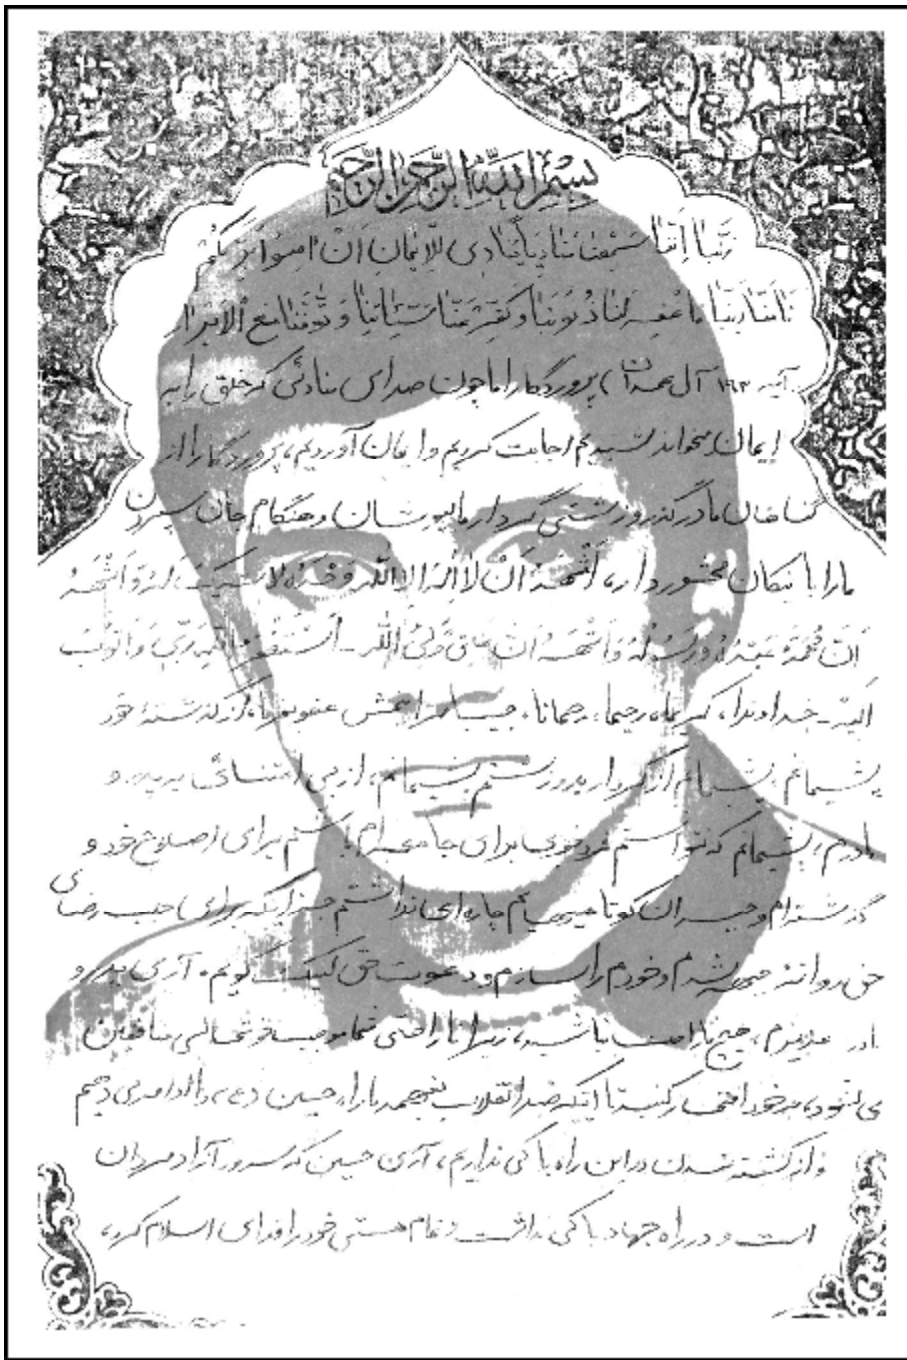 بسم الله الرحمن الرحیم
رَبَّنا اِنَّنا سَمِعْنا مُنادِیاً یُنادی لِلْایمانِ اَنْ امِنُوا بِرَبِّکُمْ
فَامَنّا رَبَّنا فَاغْفِرْ لَنا ذُنُوبَنا وَ کَفِّرْ عَنّا سَیِّئاتِنا وَ تَوَفَّنا مَعَ الْاَبْرارِ
آیه ۱۹۳ آل عمران) پروردگارا ما چون صدای منادئی که خلق را به
ایمان میخواند شنیدیم اجابت کردیم و ایمان آوردیم، پروردگارا از
گناهان ما درگذر و زشتی کردار ما بپوشان و هنگام جان سپردن
ما را با نیکان محشور دار، اَشْهَدُ اَنْ لا اِلهَ اِلا الله وَحْدَهُ لا شَریکَ لَهُ وَ اَشْهَدُ
اَنَّ مُحَمَّدَ عَبْدُهُ وَ رَسُولُهُ وَ اَشْهَدُ اَنَّ عَلیً وَلیُّ الله - اَسْتَغْفِرُ اللهَ رَبّی وَ اَتُوبُ
اِلَیْهِ - خداوندا، کریما، رحیما، رحمانا، عفو بفرما، از گذشتهٔ خود
پشیمانم پشیمانم از کردار بد و زشتم پشیمانم، از بی اعتنائی به پدر و
مادرم، پشیمانم که نتوانستم فرد خوبی برای جامعه‌ام باشم برای اصلاح خود و
گذشته‌ام و جبران کوتاهیهایم چاره‌ای نداشتم جز اینکه برای جلب رضای
حق روانهٔ جبهه شدم و خودم را بسازم و دعوت حق لبیک گویم. آری پدر و
مادر عزیزم، هیچ ناراحت نباشید، زیرا ناراحتی شما موجب خوشحالی منافقین
می‌شود، بر خود افتخار کنید تا اینکه ضد انقلاب بفهمد ما راه حسین (ع) را ادامه می‌دهیم
و از کشته شدن در این راه باکی نداریم، آری حسین که سرور آزاد مردان
است و در راه جهاد باکی نداشت و تمام هستی خود را فدای اسلام کرد،